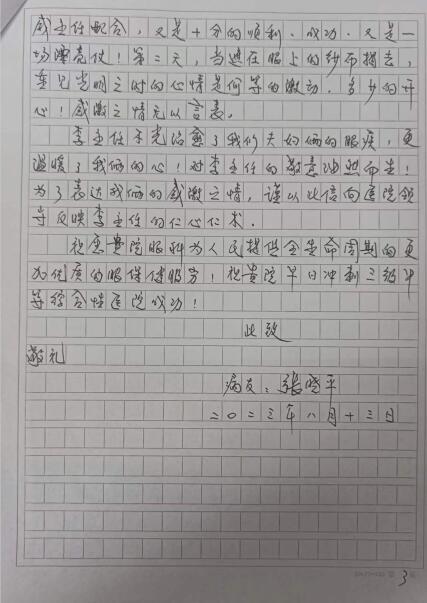 咸主任配合，又是十分的顺利、成功。又是一
场漂亮仗！第二天，当遮在眼上的纱布揭去，
重见光明之时的心情是何等的激动，多少的开
心！感激之情无以言表。
李主任不光治愈了我们夫妇俩的眼疾，更
温暖了我俩的心！对李主任的敬意油然而生！
为了表达我俩的感激之情，谨以此信向医院领
导反映李主任的仁心仁术。
祝愿贵院眼科为人民提供全生命周期的更
为优质的眼保健服务！祝贵院早日冲刺三级甲
等综合性医院成功！
此致
敬礼
病友：张晓平
二〇二三年八月十三日
第3